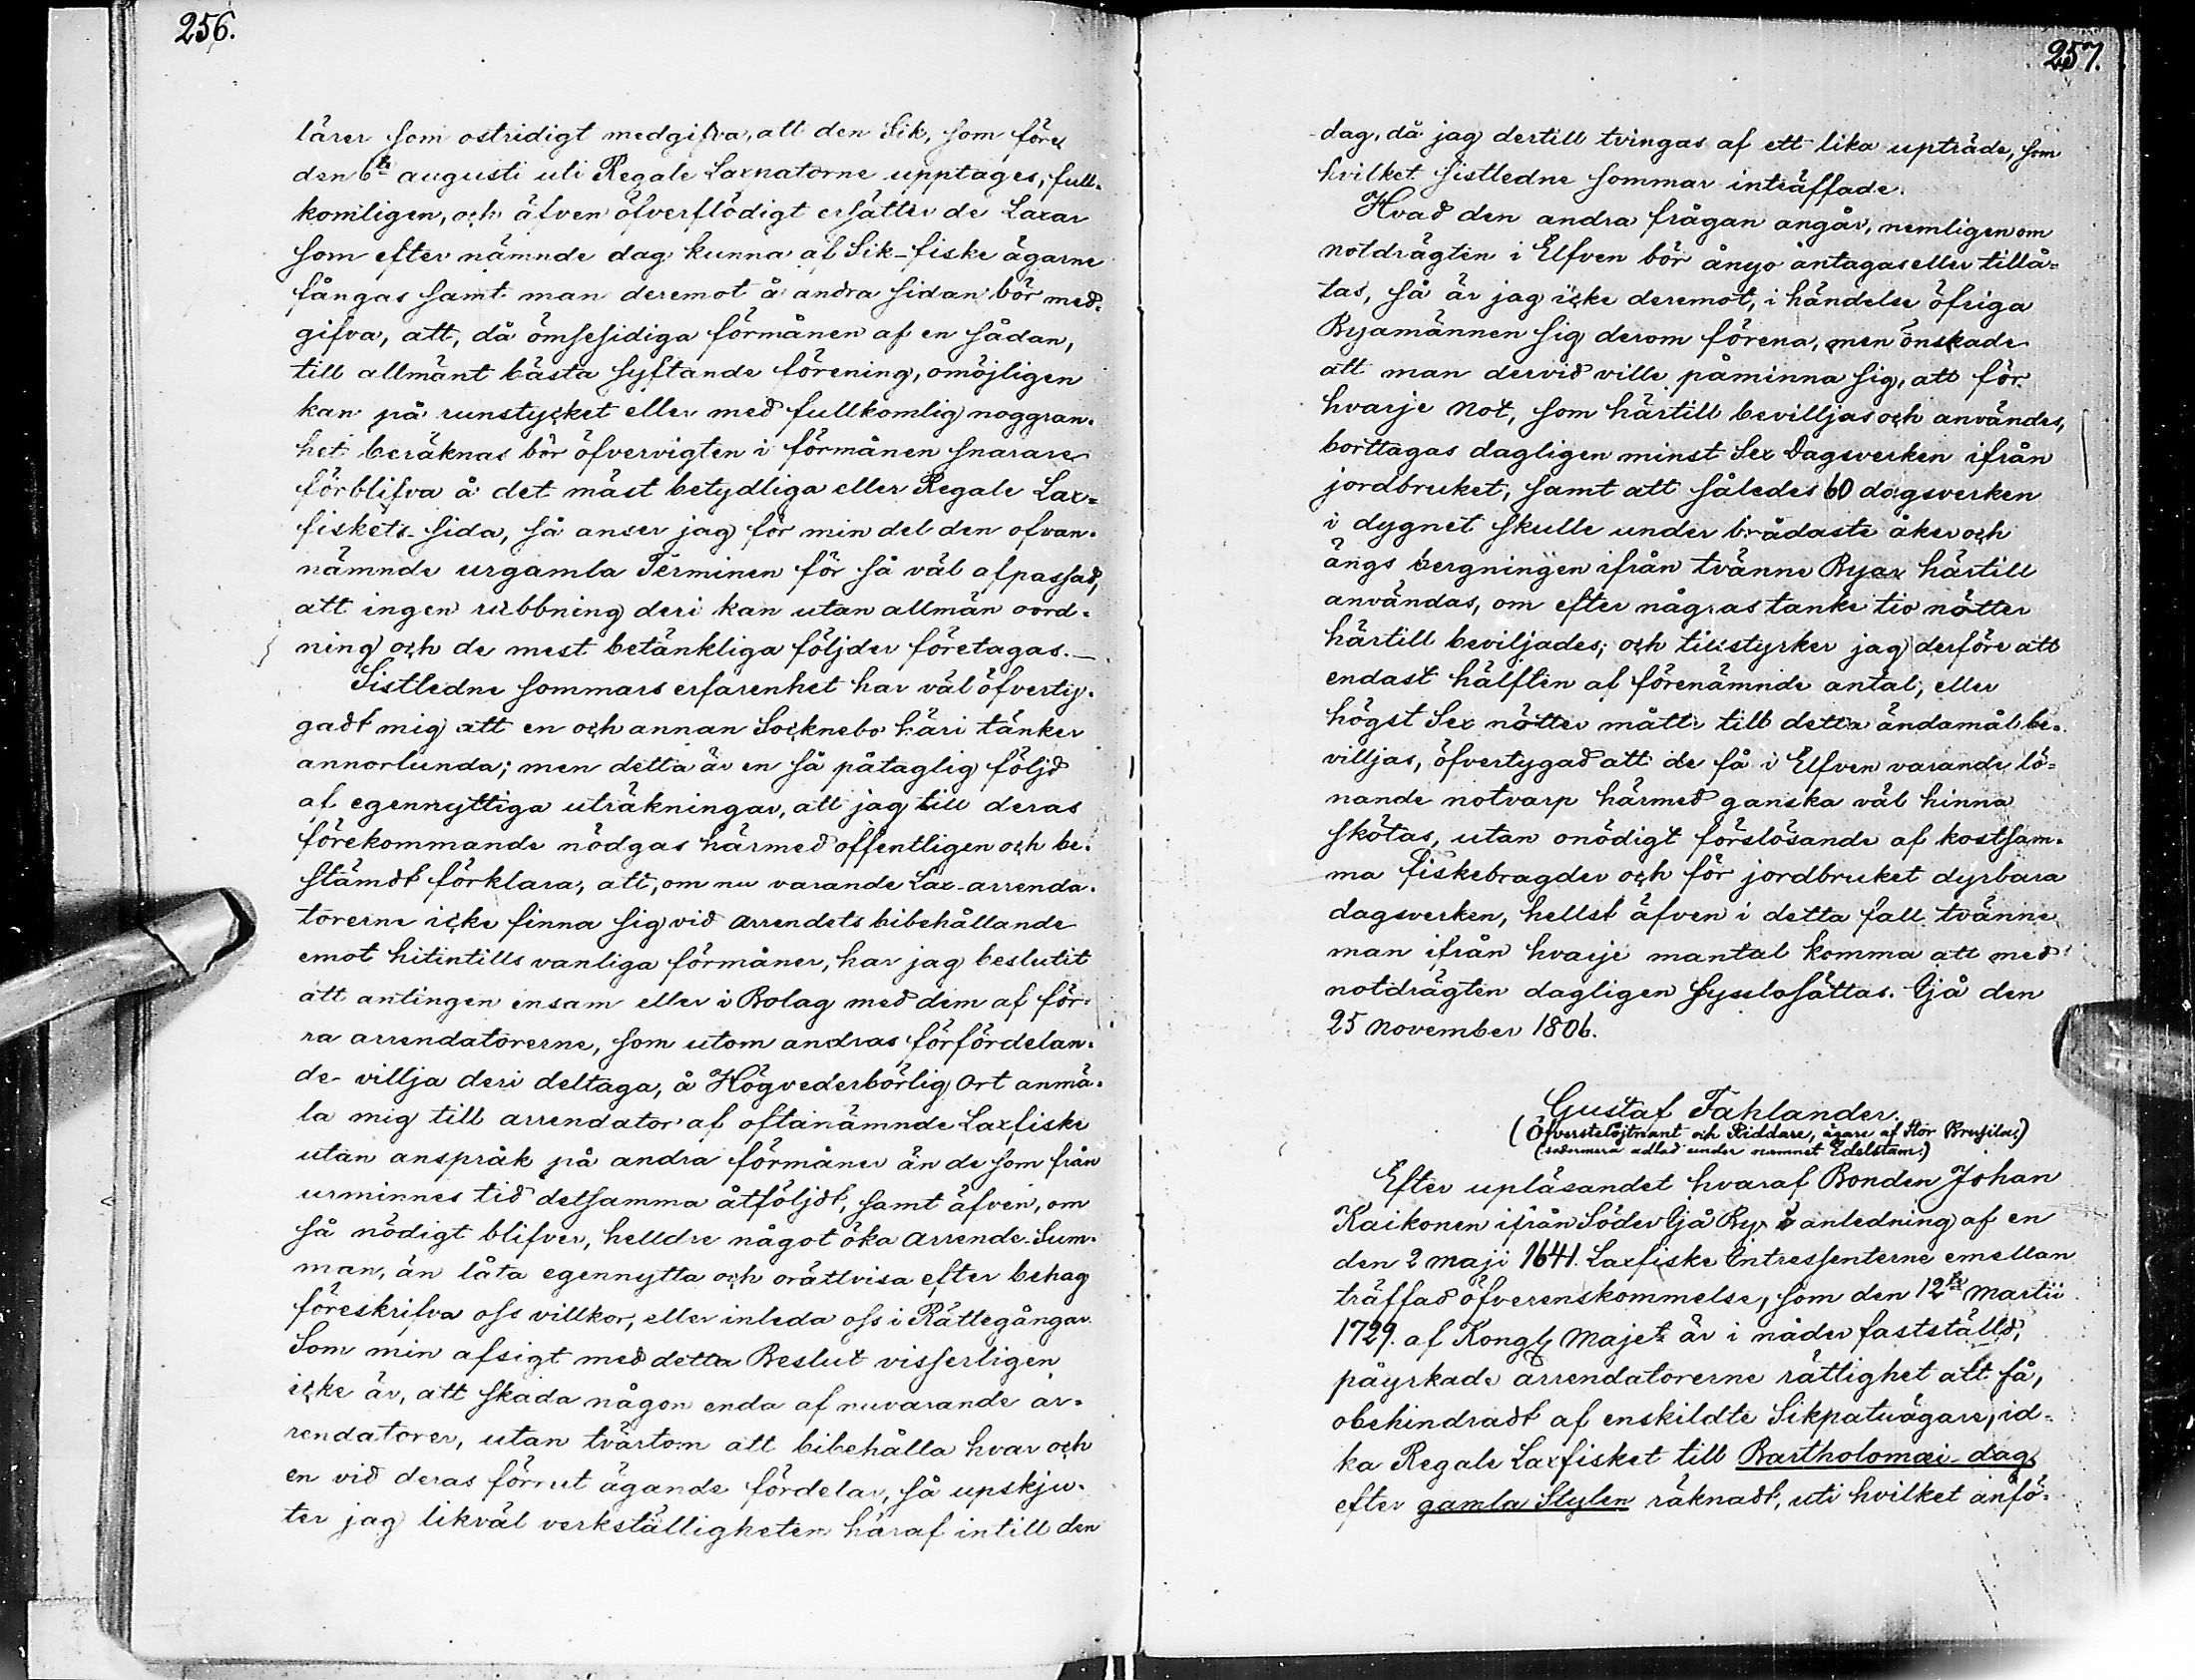 256.
lärer som ostridigt medgifva, att den Sik, som före
den 6te augusti uti Regale Laxpatorne upptages, full-
komligen, och äfven öfverflödigt ersätter de Laxar
som efter nämnde dag kunna af Sik-fiske ägarne
fångas samt man deremot å andra sidan bör med-
gifva, att, då ömsesidiga förmånen af en sådan,
till allmänt bästa syftande förening, omöjligen
kan på runstycket eller med fullkomlig noggran-
het beräknas bör öfvervigten i förmånen snarare
förblifva å det mäst betydliga eller Regale Lax-
fiskets sida, så anser jag för min del den ofvan-
nämnde urgamla Terminen för så väl afpassad,
att ingen rubbning deri kan utan allmän oord-
ning och de mest betänkliga följder företagas.—
Sistledne sommars erfarenhet har väl öfverty-
gadt mig att en och annan Socknebo häri tänker
annorlunda; men detta är en så påtaglig följd
af egennyttiga uträkningar, att jag till deras
förekommande nödgas härmed offentligen och be-
stämdt förklara, att, om nu varande Lax-arrenda-
torerne icke finna sig vid arrendets bibehållande
emot hitintills vanliga förmåner, har jag beslutit
att antingen ensam eller i Bolag med dem af för-
ra arrendatorerne, som utom andras förfördelan-
de villja deri deltaga, å Högvederbörlig ort anmä-
la mig till arrendator af oftanämnde Laxfiske
utan anspråk på andra förmåner än de som från
urminnes tid detsamma åtföljdt, samt äfven, om
så nödigt blifver, helldre något öka arrende-Sum-
man, än låta egennytta och orättvisa efter behag
föreskrifva oss villkor, eller inleda oss i Rättegångar.
Som min afsigt med detta Beslut visserligen
icke är, att skada någon enda af nuvarande ar-
rendatorer, utan tvärtom att bibehålla hvar och
en vid deras förrut ägande fördelar, så upskju-
ter jag likväl verkställigheten häraf intill den
257.
dag, då jag dertill tvingas af ett lika upträde, som
hvilket sistledne sommar inträffade.
Hvad den andra frågan angår, nemligen om
notdrägten i Elfven bör ånyo antagas eller tillå-
tas, så är jag icke deremot, i händelse öfriga
Byamännen sig derom förena, men önskade
att man dervid ville påminna sig, att för
hvarje not, som härtill bevilljas och användes,
borttagas dagligen minst Sex Dagsverken ifrån
jordbruket, samt att således 60 dagsverken
i dygnet skulle under brådaste åker och
ängs bergningen ifrån tvänne Byar härtill
användas, om efter någras tanke tio nötter
härtill beviljades; och tillstyrker jag derföre att
endast hälften af förenämnde antal, eller
högst Sex nötter måtte till detta ändamål be-
villjas, öfvertygad att de få i Elfven varande lö-
nande notvarp härmed ganska väl hinna
skötas, utan onödigt förslösande af kostsam-
ma fiskebragder och för jordbruket dyrbara
dagsverken, hellst äfven i detta fall tvänne
man ifrån hvarje mantal komma att med
notdrägten dagligen sysslosättas. Ijå den
25 november 1806.
Gustaf Fahlander.
(Öfverstelöjtnant och Riddare, ägare af Stor Brusila.)
(sedermera adlad under namnet Edelstam.)
Efter upläsandet hvaraf Bonden Johan
Kaikonen ifrån Söder Ijå By, i anledning af en
den 2 maji 1641. Laxfiske Intressenterne emellan
träffad öfverenskommelse, som den 12te martii
1729. af Kongl. Majet är i nåder fastställd,
påyrkade arrendatorerne rättighet att få,
obehindradt af enskildte Sikpatuägare, id-
ka Regale Laxfisket till Bartholomæi dag
efter gamla Stylen räknadt, uti hvilket anfö-